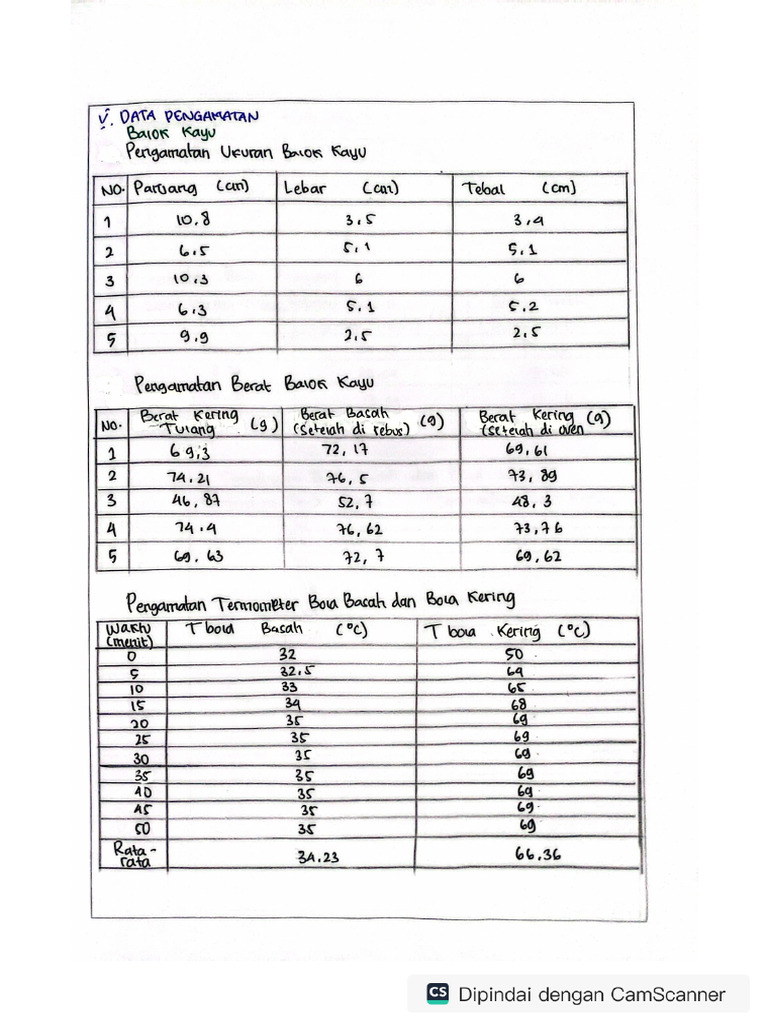 V. DATA PENGAMATAN
Balok Kayu
Pengamatan Ukuran Balok Kayu
No. Panjang (cm) Lebar (cm) Tebal (cm)
1 10,8 3,5 3,4
2 6,5 5,1 5,1
3 10,3 6 6
4 6,3 5,1 5,2
5 9,9 2,5 2,5
Pengamatan Berat Balok Kayu
No. Berat Kering Tulang (g) Berat Basah (setelah di rebus) (g) Berat Kering (setelah di oven (g)
1 69,3 72,17 69,61
2 74,21 76,5 73,89
3 46,87 52,7 48,3
4 74,4 76,62 73,76
5 69,63 72,7 69,62
Pengamatan Termometer Bola Basah dan Bola Kering
Waktu (menit) T bola Basah (°C) T bola Kering (°C)
0 32 50
5 32,5 64
10 33 65
15 34 68
20 35 69
25 35 69
30 35 69
35 35 69
40 35 69
45 35 69
50 35 69
Rata-rata 34.23 66.36
CS Dipindai dengan CamScanner